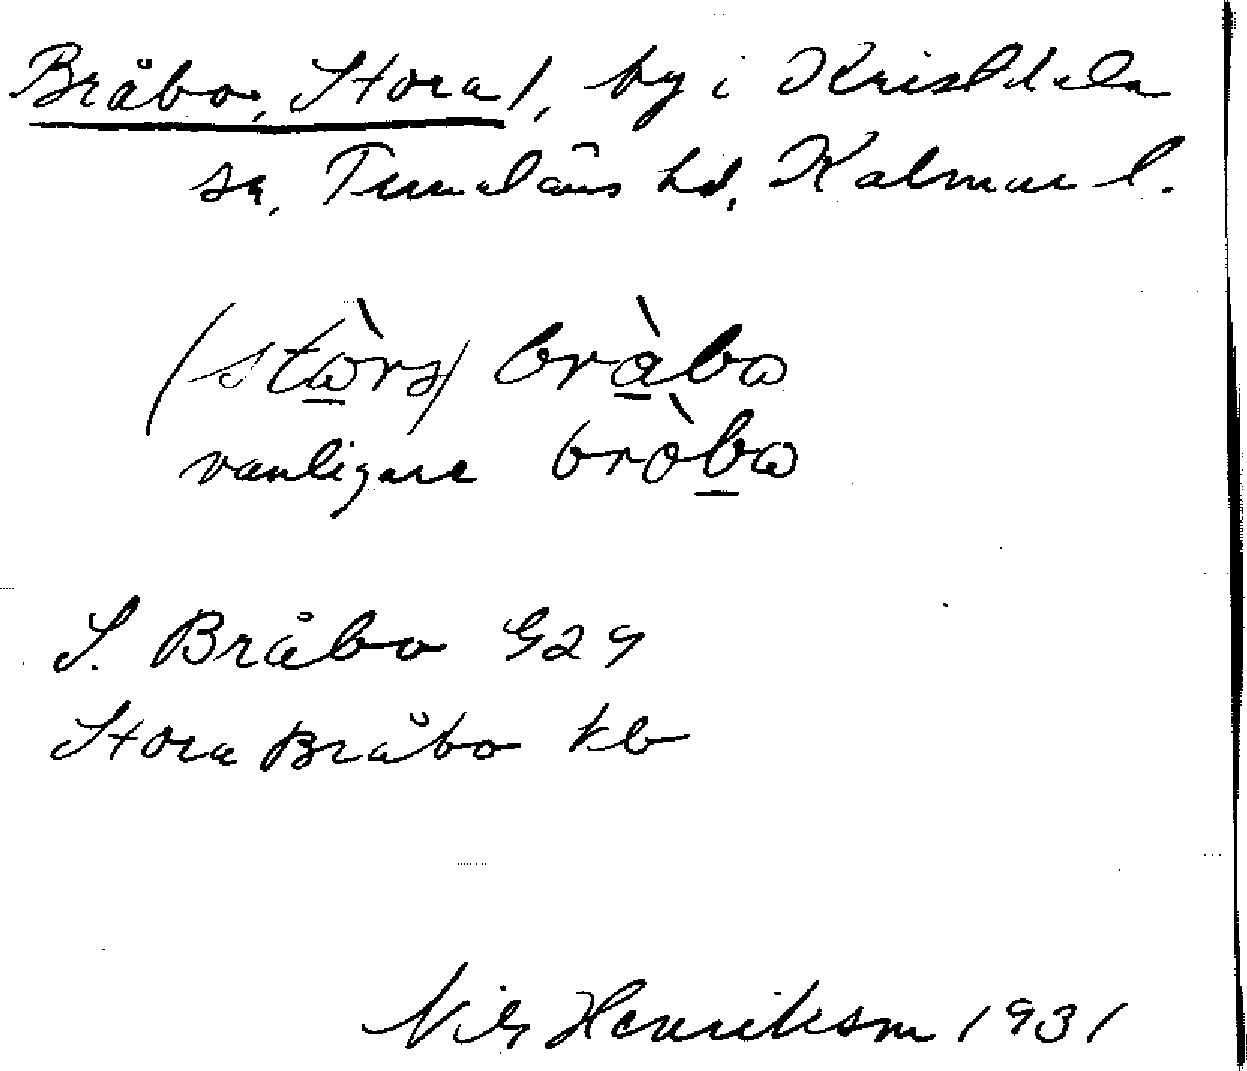 Bråbo, Stora/, by i Kristdala
sn, Tunaläns hd, Kalmar l.
(stòrs) bràbo
vanligare bròbo
S. Bråbo G29
Stora Bråbo kb
Nils Henriksson 1931